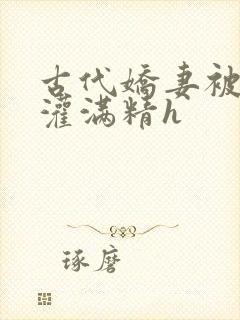 古代嬌妻被
灌滿精h
琢磨